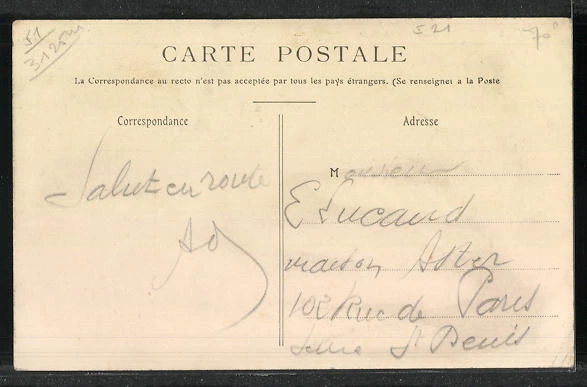 51
3120m
521
70c
CARTE POSTALE
La Correspondance au recto n'est pas acceptée par tous les pays étrangers. (Se renseignei a la Poste
Correspondance
Adresse
Salut en route
Ad
Monsieur
E Lucaud
maison Aster
102 Rue de Paris
St Denis